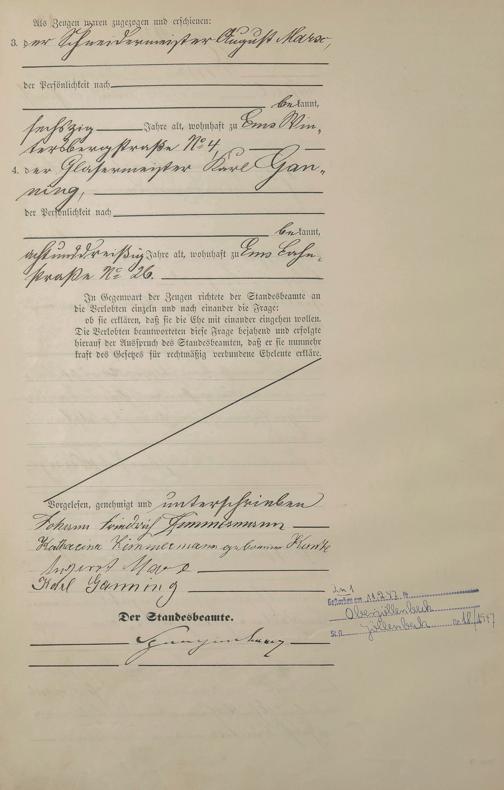 Als Zeugen waren zugezogen und erschienen:
3. der Schneidermeister August Marx,
der Persönlichkeit nach
bekannt,
sechszig Jahre alt, wohnhaft zu Ems Win-
tersbergstraße No 4,
4. der Glasermeister Karl Gan-
ning,
der Persönlichkeit nach
bekannt,
achtunddreißig Jahre alt, wohnhaft zu Ems Lahn-
straße No 26.
In Gegenwart der Zeugen richtete der Standesbeamte an
die Verlobten einzeln und nach einander die Frage:
ob sie erklären, daß sie die Ehe mit einander eingehen wollen.
Die Verlobten beantworteten diese Frage bejahend und erfolgte
hierauf der Ausspruch des Standesbeamten, daß er sie nunmehr
kraft des Gesetzes für rechtmäßig verbundene Eheleute erkläre.
Vorgelesen, genehmigt und unterschrieben
Johann Friedrich Zimmermann
Katharina Zimmermann geborene
August Marx
Karl Ganning
Der Standesbeamte.
zu 1
Gestorben am 11.2.47 in
Oberjöllenbeck
St.A. Jöllenbeck No 18/1947